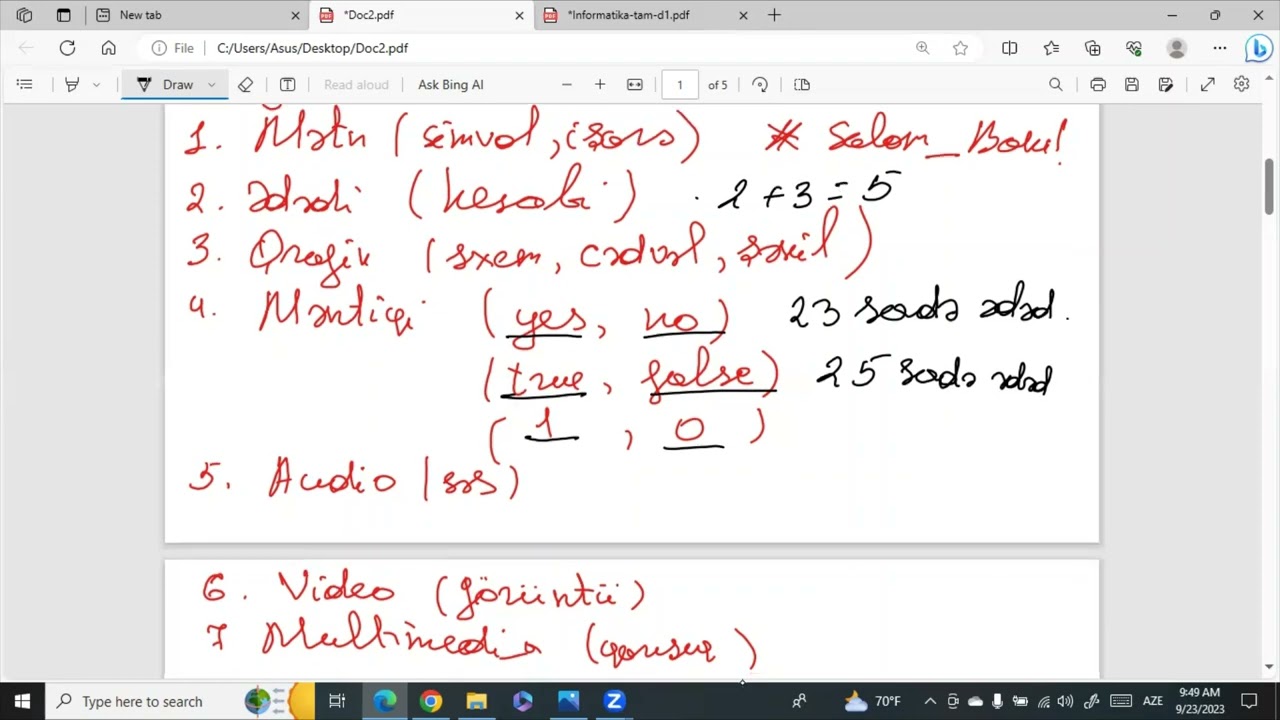 New tab
*Doc2.pdf
*Informatika-tam-d1.pdf
File C:/Users/Asus/Desktop/Doc2.pdf
Draw Read aloud Ask Bing AI 1 of 5
1. Mətn (simvol, işarə) * Salam_Bakı!
2. Ədədi (hesabi) 2 + 3 = 5
3. Qrafik (sxem, cədvəl, şəkil)
4. Məntiqi (yes, no) 23 sadə ədəd.
(true, false) 25 sadə ədəd
(1, 0)
5. Audio (səs)
6. Video (görüntü)
7 Multimedia (qarışıq)
Type here to search
70°F
AZE
9:49 AM
9/23/2023